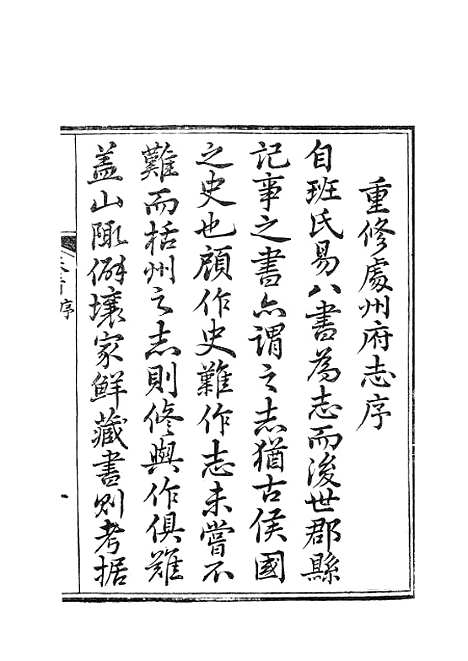 重修處州府志序
自班氏易八書為志而後世郡縣
記事之書亦謂之志猶古侯國
之史也顧作史難作志未嘗不
難而栝州之志則修與作俱難
盖山陬僻壤家鮮藏書則考据
序
一